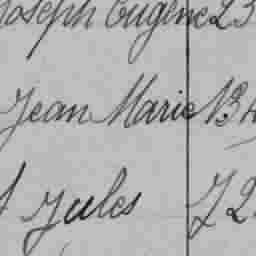 Joseph Eugène 23
Jean Marie 13
Jules 72